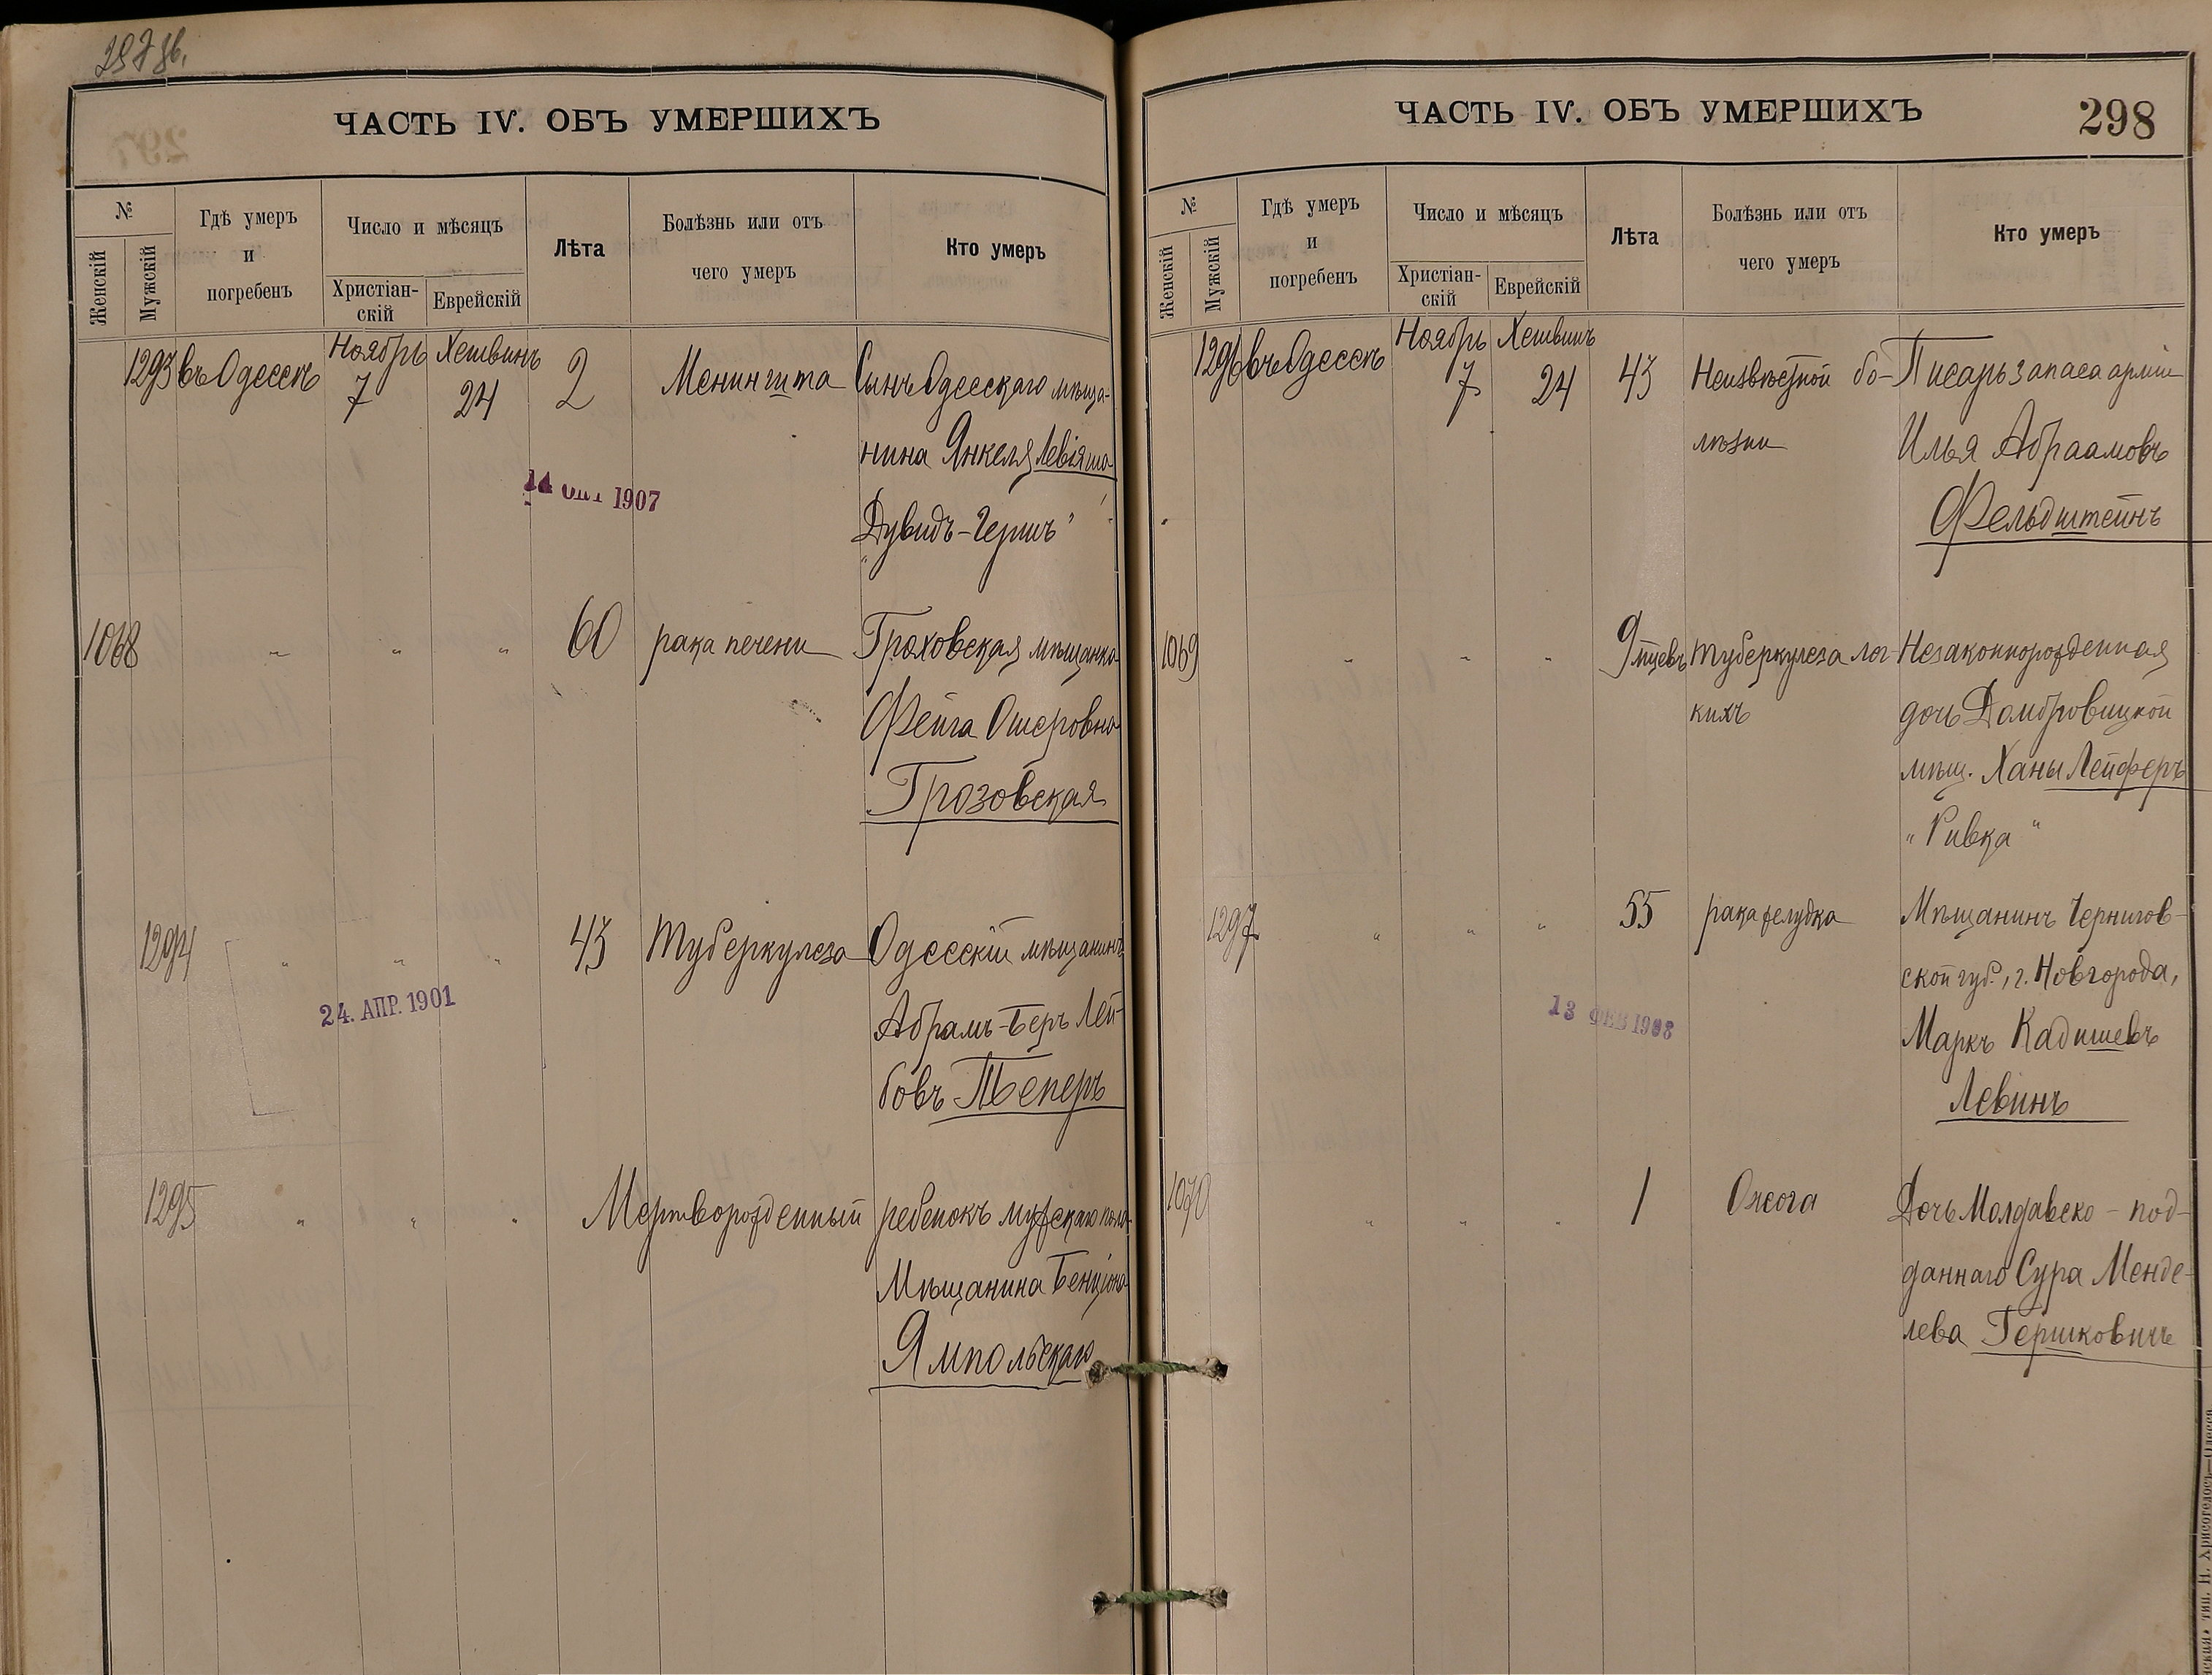 297 об.
ЧАСТЬ IV. ОБЪ УМЕРШИХЪ
№
Женскій
Мужскій
Гдѣ умеръ
и
погребенъ
Число и мѣсяцъ
Христіан-
скій
Еврейскій
Лѣта
Болѣзнь или отъ
чего умеръ
Кто умеръ
1293 въ Одессѣ Ноябрь 7 Хешвинъ 24 2 Менингита Сынъ Одесскаго мѣща-
нина Янкеля Левіята
14 ОКТ 1907
„Дувидъ-Гершъ“
1068 " " " 60 рака печени Гроховская мѣщанка
Фейга Ошеровна
Грозовская
1294 " " " 43 Туберкулеза Одесскій мѣщанинъ
24. АПР. 1901
Абрамъ-Беръ Лей-
бовъ Теперъ
1295 " " " Мертворожденный ребенокъ мужскаго пола
Мѣщанина Бенціона
Ямпольскаго
ЧАСТЬ IV. ОБЪ УМЕРШИХЪ
298
№
Женскій
Мужскій
Гдѣ умеръ
и
погребенъ
Число и мѣсяцъ
Христіан-
скій
Еврейскій
Лѣта
Болѣзнь или отъ
чего умеръ
Кто умеръ
1296 въ Одессѣ Ноябрь 7 Хешвинъ 24 43 Неизвѣстной бо- Писарь запаса арміи
лѣзни Илья Абраамовъ
Фельдштейнъ
1069 " " " 9 мцевъ Туберкулеза лег- Незаконнорожденная
кихъ дочь Домбровицкой
мѣщ. Ханы Лейферъ
„Ривка“
1297 " " " 55 рака желудка Мѣщанинъ Чернигов-
ской губ., г. Новгорода,
13 ФЕВ 1908
Маркъ Кадишевъ
Левинъ
1070 " " " 1 Ожога Дочь Молдавско-под-
даннаго Сура Менде-
лева Гершковичъ
тип. И. Хрисогелосъ—Одесса